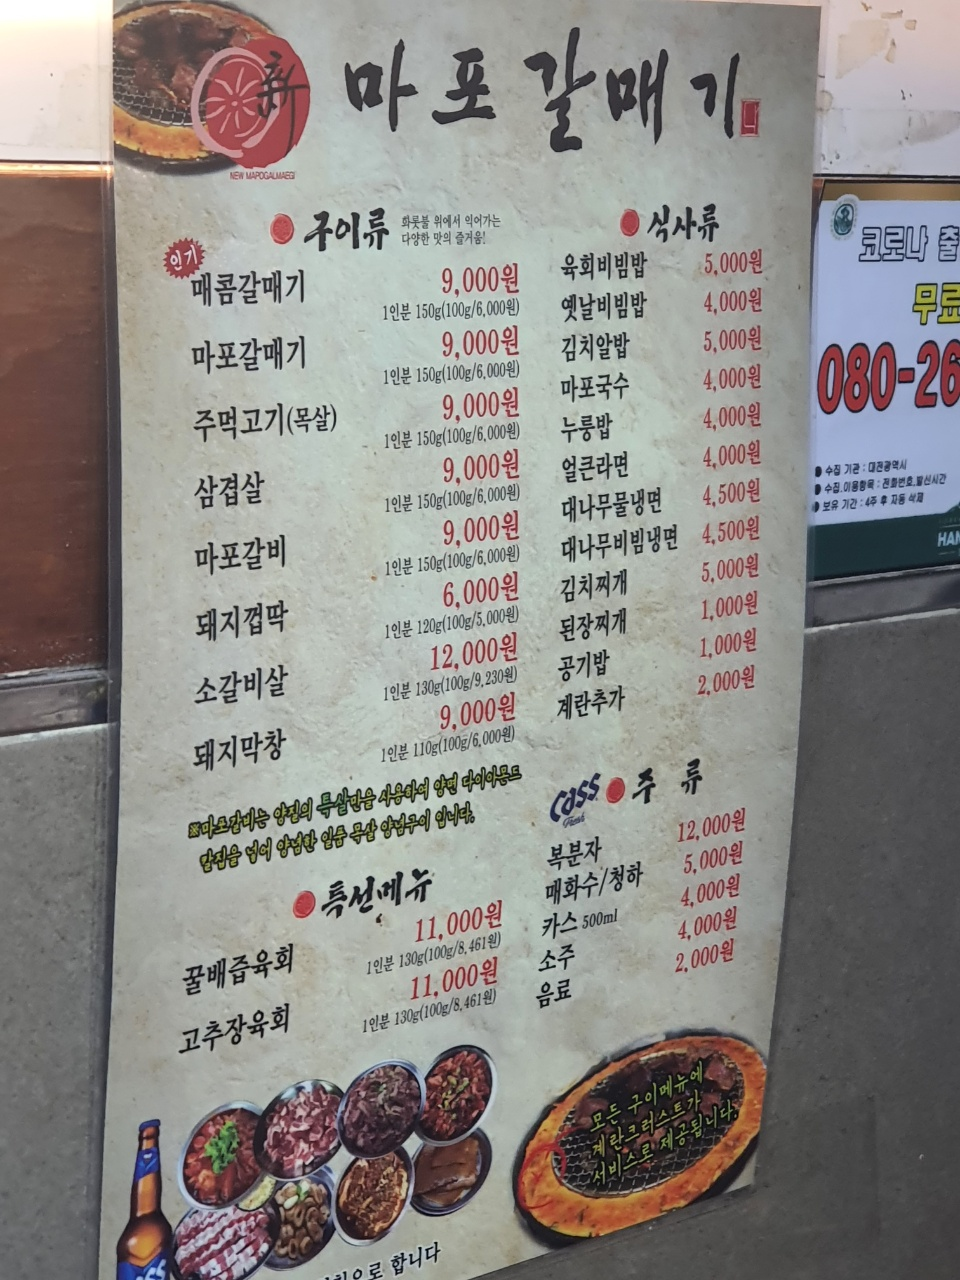 新
NEW MAPOGALMAEGI
마포갈매기
구이류
화롯불 위에서 익어가는
다양한 맛의 즐거움!
인기
매콤갈매기 9,000원
1인분 150g(100g/6,000원)
마포갈매기 9,000원
1인분 150g(100g/6,000원)
주먹고기(목살) 9,000원
1인분 150g(100g/6,000원)
삼겹살 9,000원
1인분 150g(100g/6,000원)
마포갈비 9,000원
1인분 150g(100g/6,000원)
돼지껍딱 6,000원
1인분 120g(100g/5,000원)
소갈비살 12,000원
1인분 130g(100g/9,230원)
돼지막창 9,000원
1인분 110g(100g/6,000원)
※마포갈비는 양질의 특살만을 사용하여 양면 다이아몬드
칼집을 넣어 양념한 일품 목살 양념구이 입니다.
특선메뉴
꿀배즙육회 11,000원
1인분 130g(100g/8,461원)
고추장육회 11,000원
1인분 130g(100g/8,461원)
식사류
육회비빔밥 5,000원
옛날비빔밥 4,000원
김치알밥 5,000원
마포국수 4,000원
누룽밥 4,000원
얼큰라면 4,000원
대나무물냉면 4,500원
대나무비빔냉면 4,500원
김치찌개 5,000원
된장찌개 1,000원
공기밥 1,000원
계란추가 2,000원
Cass
Fresh
주류
복분자 12,000원
매화수/청하 5,000원
카스 500ml 4,000원
소주 4,000원
음료 2,000원
모든 구이메뉴에
계란크러스트가
서비스로 제공됩니다.
으로 합니다
코로나 출
무료
080-26
● 수집 기관 : 대전광역시
● 수집.이용항목 : 전화번호,발신시간
● 보유 기간 : 4주 후 자동 삭제
HAN